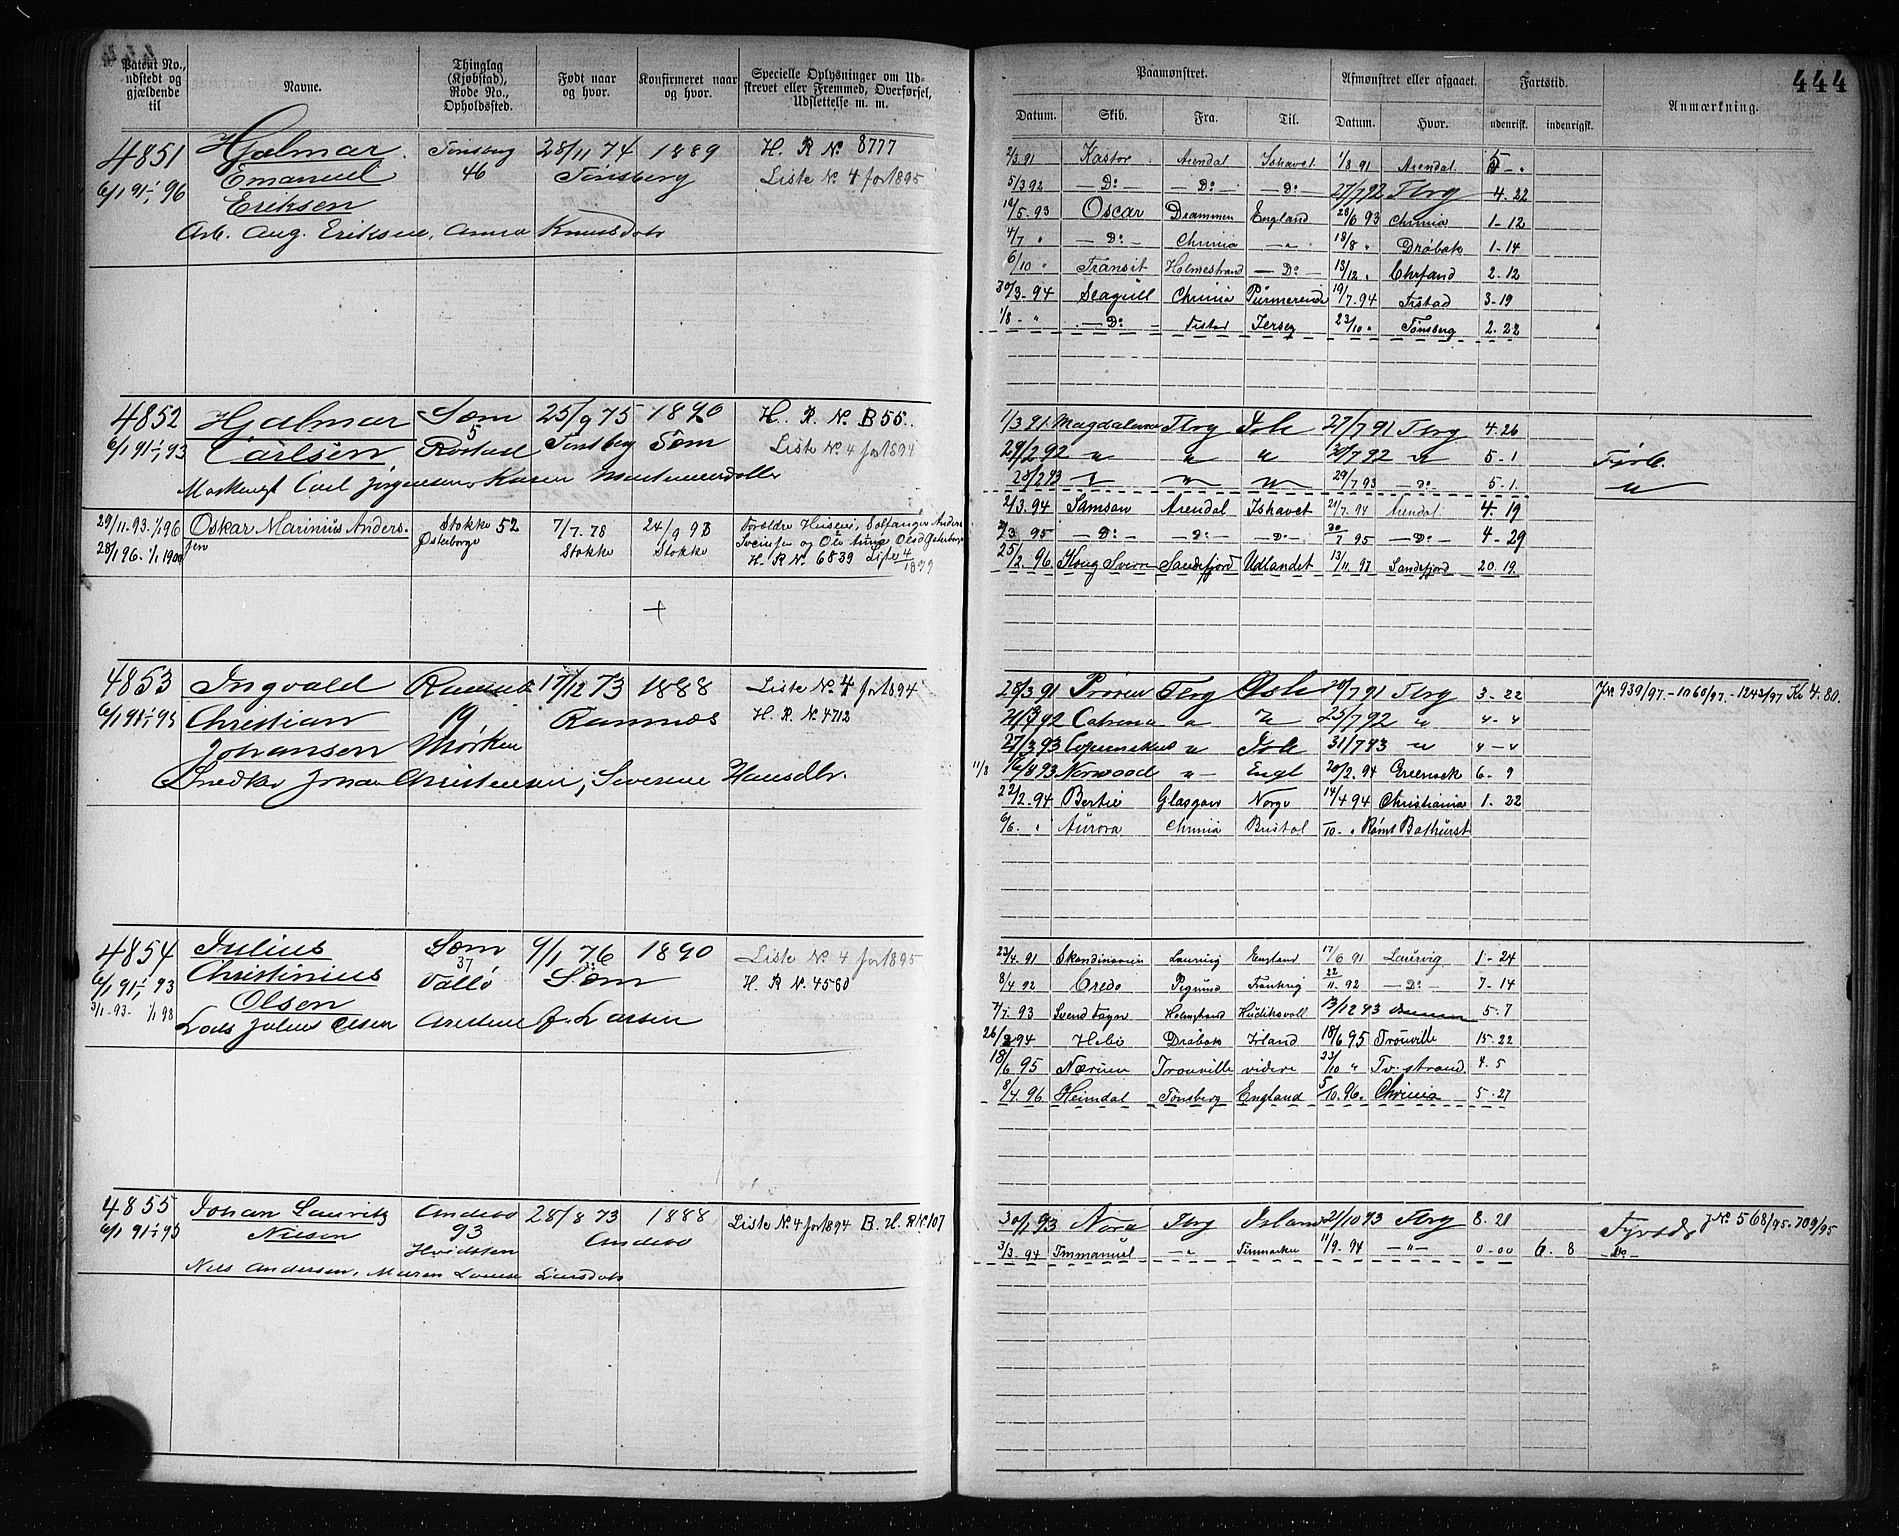 444
Patent No., udstedt og gjældende til
Navne.
Thinglag (Kjøbstad), Rode No., Opholdssted.
Født naar og hvor.
Konfirmeret naar og hvor.
Specielle Oplysninger om Udskrevet eller Fremmed, Overførsel, Udslettelse m. m.
Paamønstret.
Afmønstret eller afgaaet.
Fartstid.
Anmærkning.
Datum. Skib. Fra. Til. Datum. Hvor. udenrisk. indenrigsk.
4851 Hjalmar Tønsberg 28/11 74 1889 H. R. No. 8777
6/1 91-1/1 96 Emanuel 46 Tønsberg Liste No. 4 for 1895
Eriksen
Arb. Aug. Eriksen, Anna Knudsdatr
2/3.91 Kastor Arendal Ishavet 1/8 91 Arendal 5 - "
5/3 92 — Do — — Do — — Do 27/7 92 Tbrg 4. 22
/5. 93 Oscar Drammen England 28/6 93 Chrnia 1-12
4/7 " — Do — Chrnia — " 18/8 " Drøbak 1-14
6/10 " Transit Holmestrand — Do — 13/12 " Chrsand 2. 12
30/3. 94 Seagull Chrnia Purmerende 19/7. 94 Fr.stad 3-19
1/8 - " — Do Fr.stad Jersey 23/10 " Tønsberg 2. 22
4852 Hjalmar Sem 25/9 75 1890 H. R. No. B 55.
6/1 91-1/1 93 Carlsen 5 Tønsberg Sem Liste No. 4 for 1894
Carl Jørgensen, Karen
1/3 91. Magdalena Tbrg Ish 27/7 91 Tbrg 4. 26
29/2 92 " " " /7 92 " 5 - 1
28/2 93 " " " 29/7 93 — Do 5. 1.
29/11. 93. 1/1 96 Oskar Marinius Anders- Stokke 52 7/7. 78 24/9 93 Forældre
28/1 96. 1/1 1900 sen Østerborge Stokke Stokke
H. R. No. 6839 Liste 4/1899
2/3. 94 Samson Arendal Ishavet 21/7. 94 Arendal 4. 19
/3 95 — Do — — Do — — Do — 30/7 95 — Do — 4 - 29
25/2. 96 Kong Sverre Sandefjord Udlandet 13/11. 97 Sandefjord 20. 19.
4853 Ingvald Ramnæs 17/12 73 1888 Liste No. 4 for 1894
6/1 91-1/1 93 Christian 19 Ramnæs H. R. No. 4712
Johansen Mørken
Snedker Johan Christensen, Severine Hansdtr.
28/3 91 Tbrg Ish /7 91 Tbrg 3 - 22
/3 92 Catrina " " 25/7 92 " 4 - 4
27/3 93 Copernikus " Ish 31/7 93 " 4 - 4
11/8 16/8 93 Norwood " Engl 20/2. 94 Greenock 6 - 9
22/2. 94 Bertie Glasgow Norge 14/4 94 Christiania 1. 22
6/6. " Aurora Chrnia Bristol /10 - " Rømt Bathurst
J.No 939/97. - 1060/97. - 1243/97 Kr 4. 80.
4854 Julius Sem 9/1 76 1890 Liste No. 4 for 1895
6/1 91-1/1 93 Christinius 37 Sem H. R. No. 4560
31/1 - 93 - 1/1 98 Olsen Vallø
Lods Julius Olsen f. Larsen
23/4. 91 Skandinavien Laurvig England 17/6 91 Laurvig 1 - 24
8/4 92 Credo Frankrig 22/11. 92 — Do — 7 - 14
7/7. 93 Svend Foyn Holmstrand Hudiksvall 13/12 93 5. 7
26/2 94 Hebe Drøbak Irland 18/6 95 Trouville 15. 22
18/6 95 Nærum Trouville videre 23/10 " Tv.strand 4. 5
8/4. 96 Heimdal Tønsberg England 5/10. 96. Chrnia 5 - 27
4855 Johan Lauritz Andebo 28/8 73 1888 Liste No. 4 for 1894 B. H. R No. 107
6/1 91-1/1 93 Nilsen 93 Andebo
Hvidsten
Nils Andersen, Maren Lovise Larsdatr
30/1 93 Nora Tbrg Island 21/10 93 Tbrg 8. 21
3/3. 94 Immanuel — " — Finmarken 11/9. 94 — " — 0 - 00 6. 8
J.No 568/95. 709/95